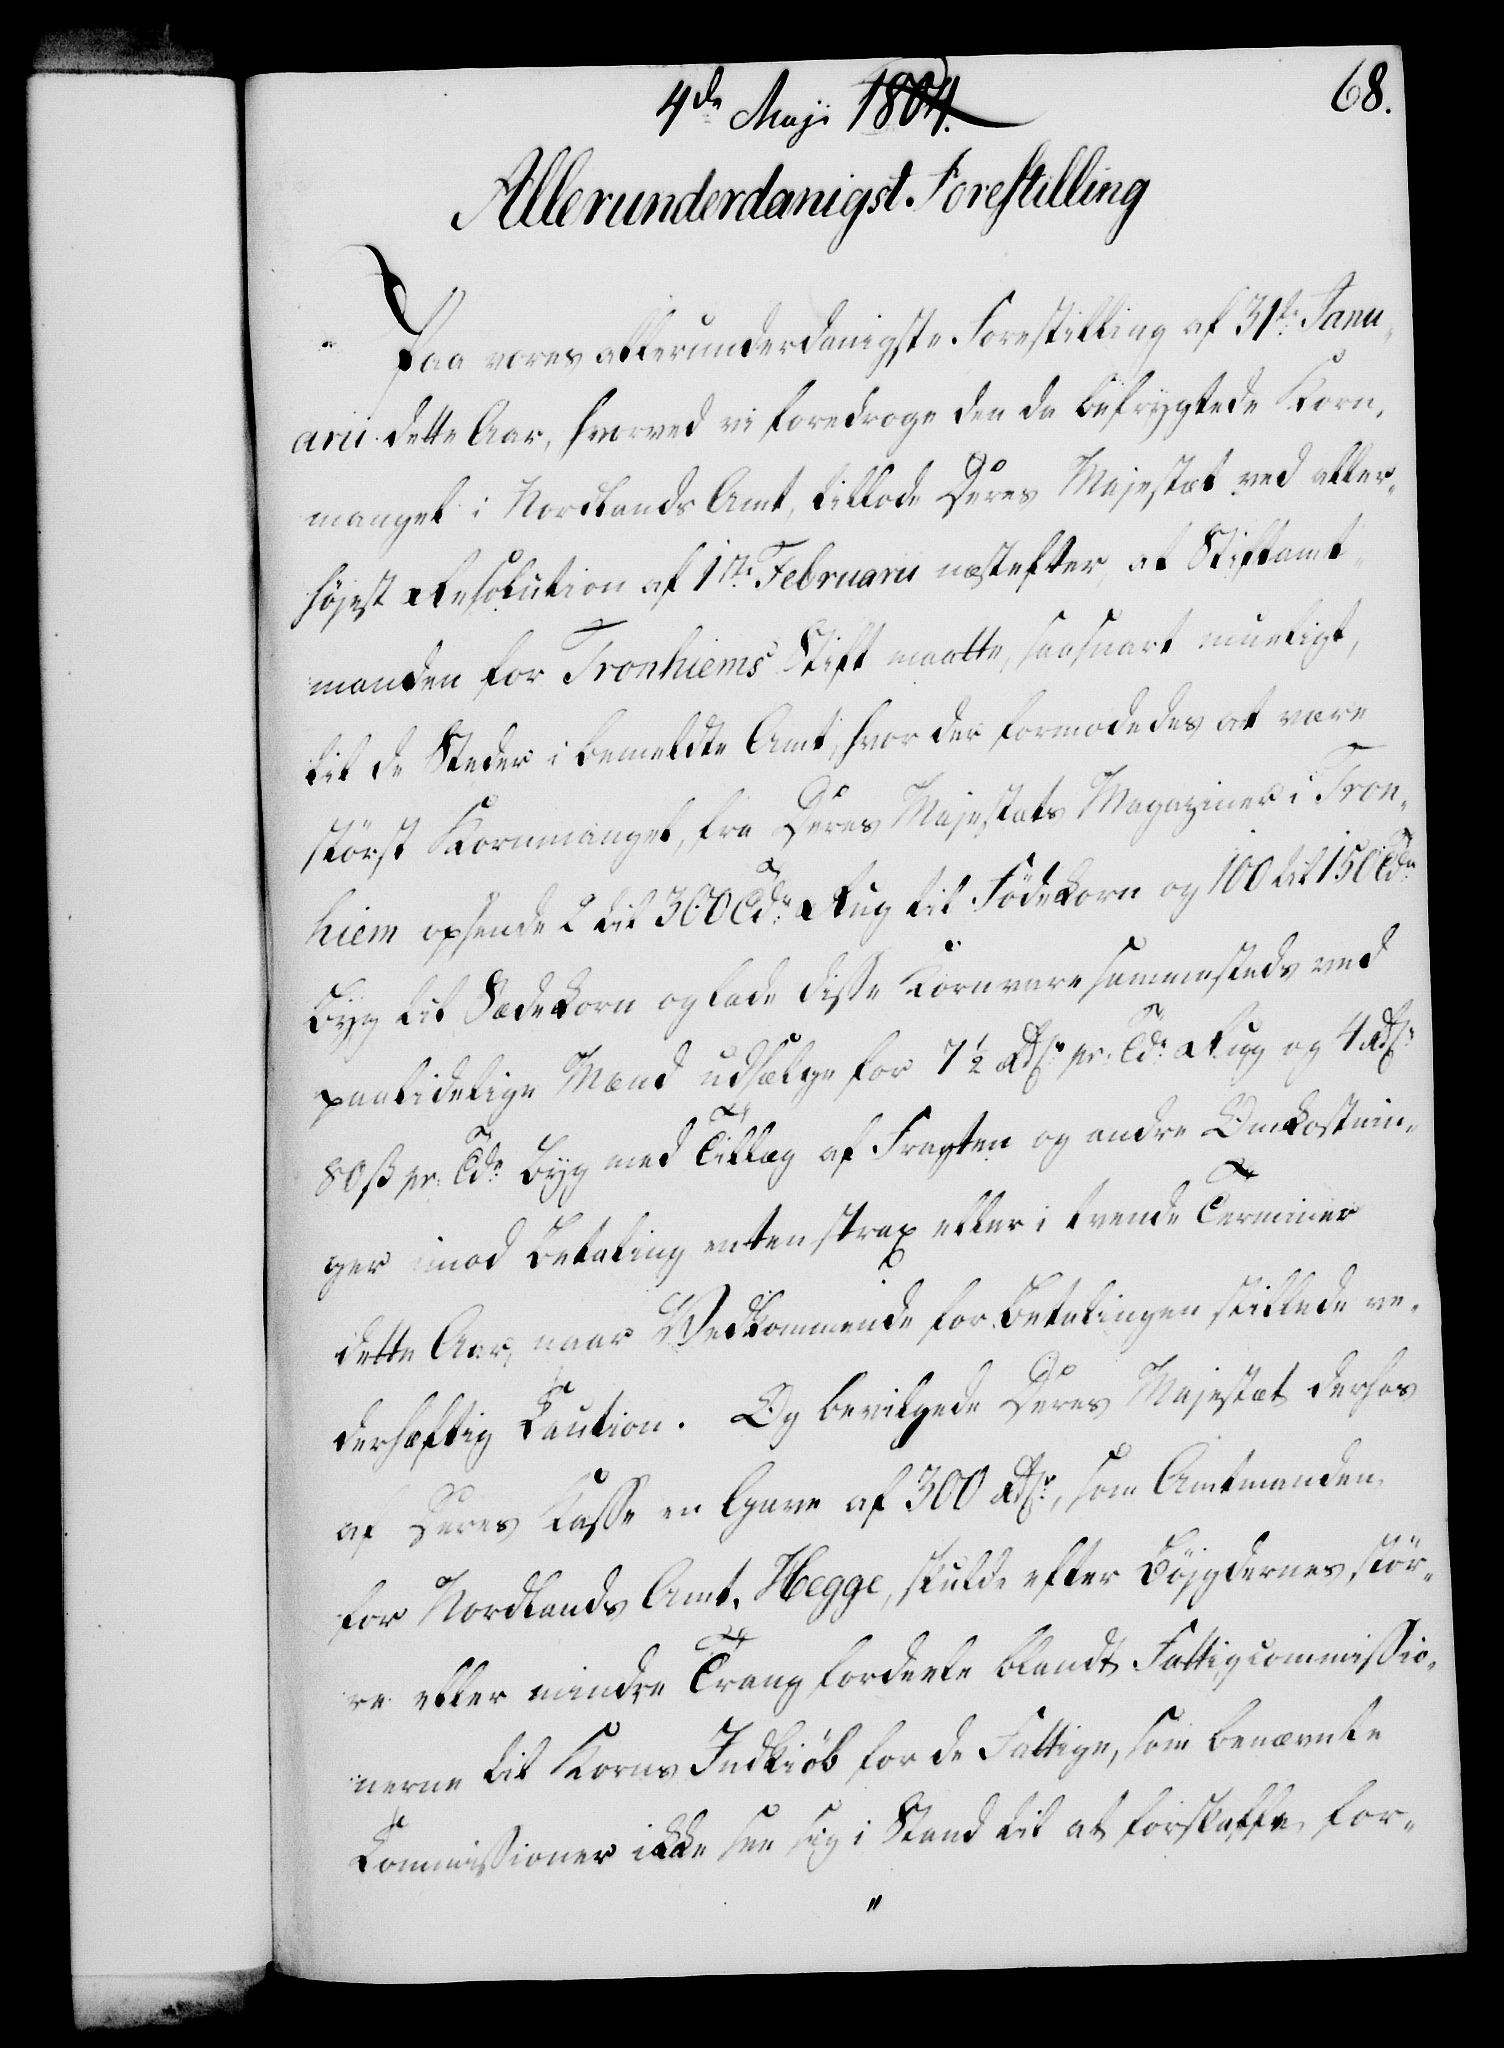 68.
4de Maji 1804.
Allerunderdanigst Forestilling
Paa vores allerunderdanigste Forestilling af 31te Janu-
arii dette Aar, hvorved vi foredroge den da befrygtede Korn-
mangel i Nordlands Amt, tillode Deres Majestæt ved aller-
højest Resolution af 1ste Februarii næstefter, at Stiftamt-
manden for Tronhiems Stift maatte, saasnart mueligt,
til de Steder i bemeldte Amt, hvor der formodedes at være
størst Kornmangel, fra Deres Majestæts Magaziner i Tron-
hiem opsende 2 til 300 Tdr Rug til Fødekorn og 100 til 150 Tdr
Byg til Sædekorn og lade disse Kornvare sammesteds ved
paalidelige Mænd udsælge for 7 1/2 Rdlr pr. Tde Rug og 4 Rdlr
80 ß pr. Tde Byg med Tillæg af Fragten og andre Omkostnin-
ger imod Betaling enten strax eller i tvende Terminer
dette Aar, naar Vedkommende for Betalingen stillede ve-
derhæftig Caution. Og bevilgede Deres Majestæt derhos
af Deres Kasse en Gave af 300 Rdlr, som Amtmanden
for Nordlands Amt, Hegge, skulde efter Bøjgdernes stør-
re eller mindre Trang fordeele blandt Fattigcommissio-
nerne til Korns Indkiøb for de Fattige, som benævnte
Commissioner ikke see sig i Stand til at forskaffe for-
"